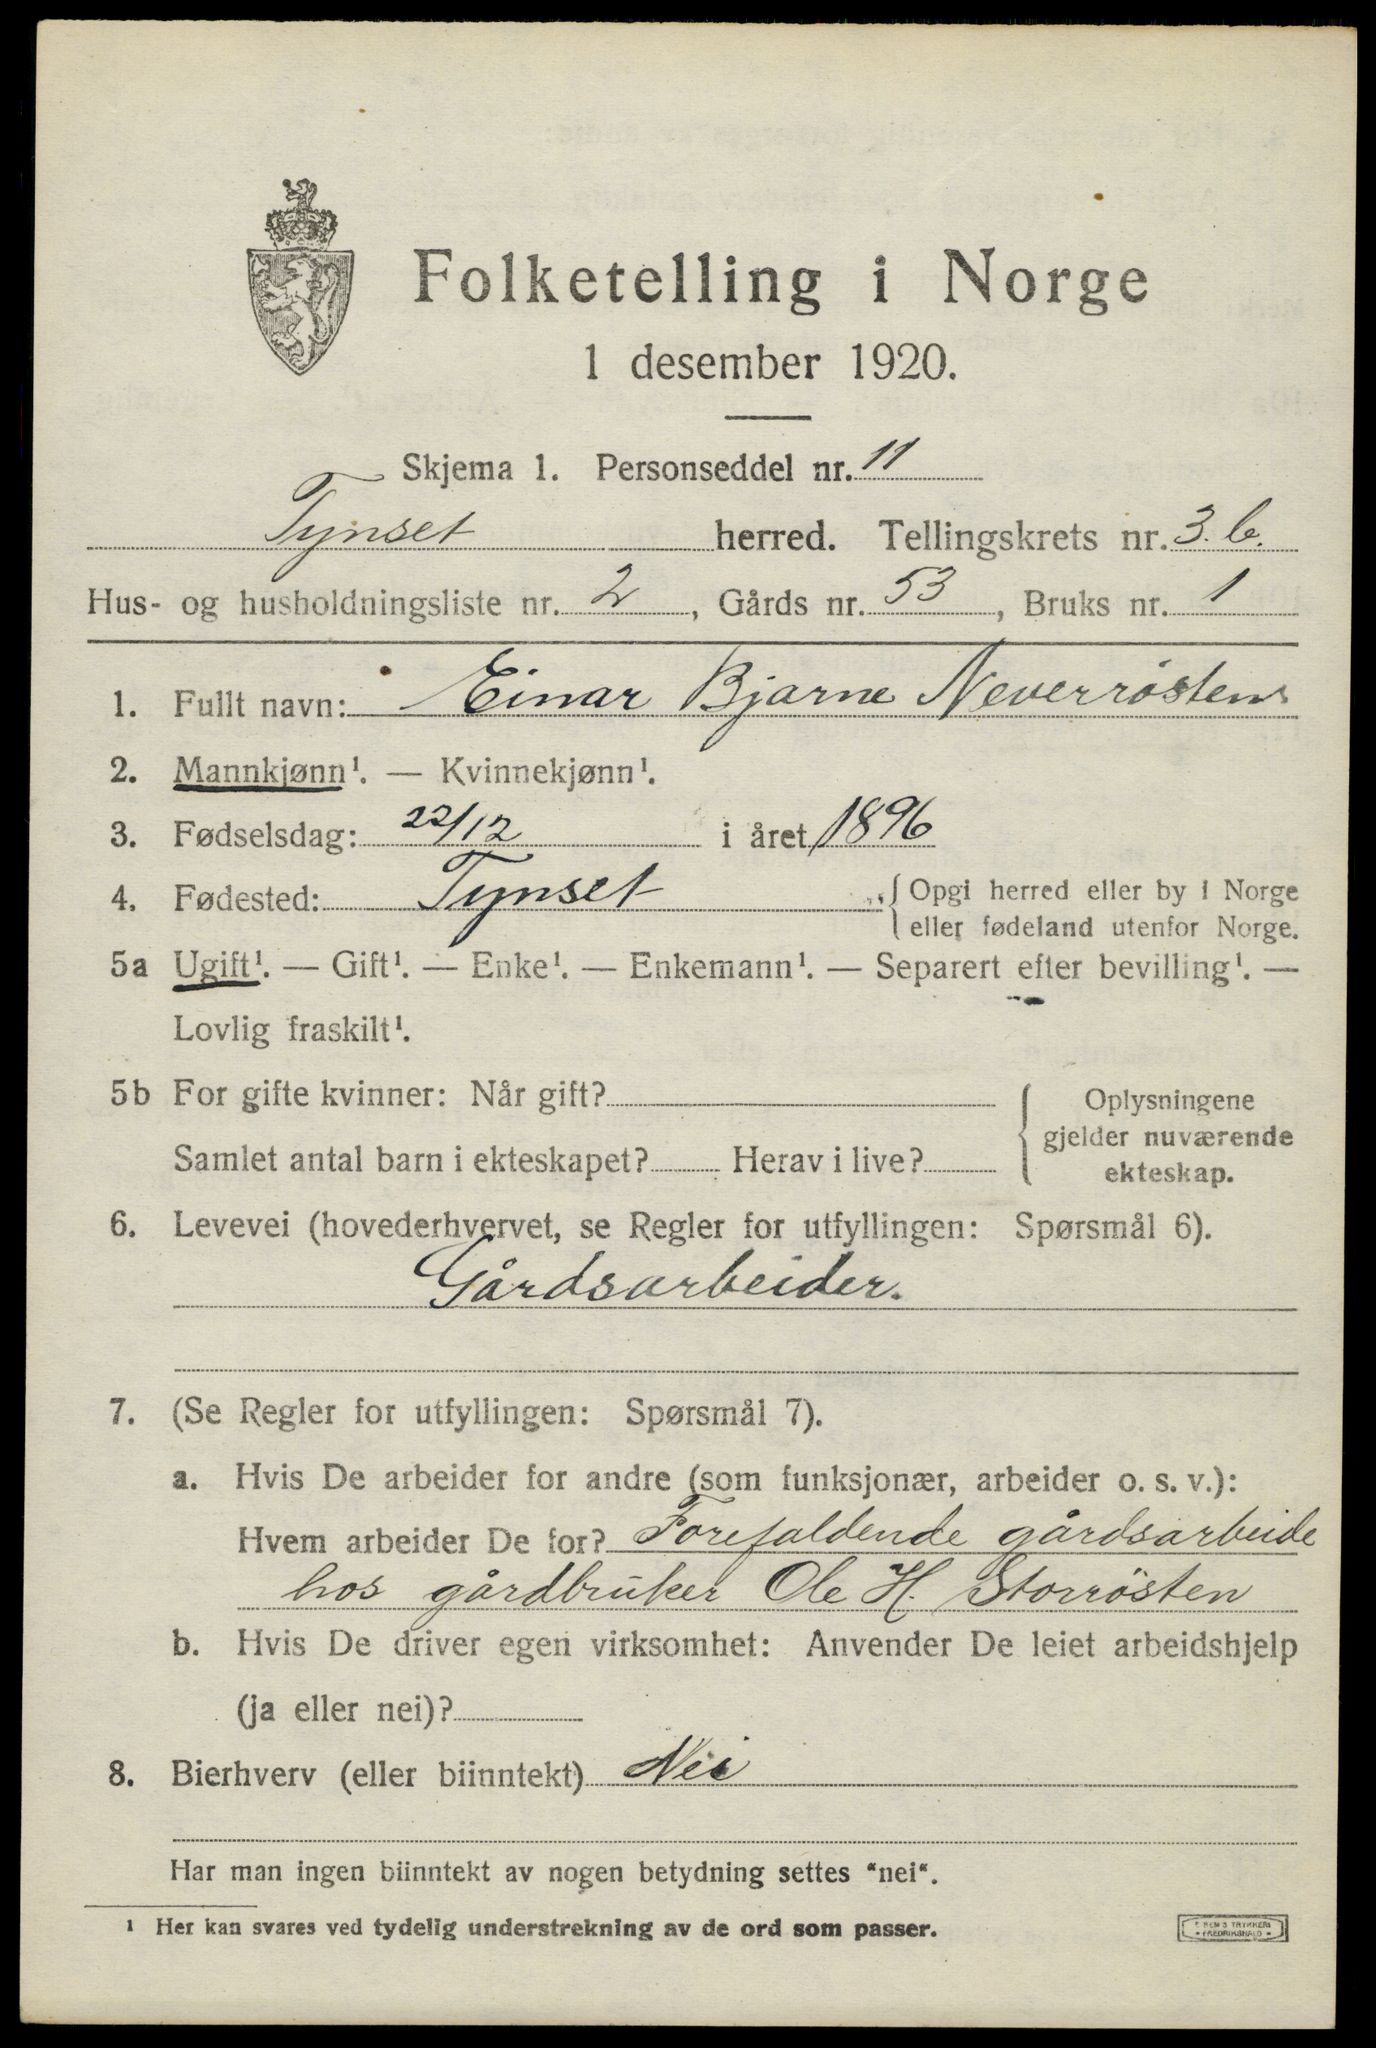 Folketelling i Norge
1 desember 1920.
Skjema 1. Personseddel nr. 11
Tynset herred. Tellingskrets nr. 3.b.
Hus- og husholdningsliste nr. 2, Gårds nr. 53, Bruks nr. 1
1. Fullt navn: Einar Bjarne Neverrösten
2. Mannkjønn¹. — Kvinnekjønn¹.
3. Fødselsdag: 22/12 i året 1896
4. Fødested: Tynset { Opgi herred eller by i Norge
eller fødeland utenfor Norge.
5a Ugift¹. — Gift¹. — Enke¹. — Enkemann¹. — Separert efter bevilling¹. —
Lovlig fraskilt¹.
5b For gifte kvinner: Når gift?
Samlet antal barn i ekteskapet? Herav i live?
Oplysningene
gjelder nuværende
ekteskap.
6. Levevei (hovederhvervet, se Regler for utfyllingen: Spørsmål 6).
Gårdsarbeider.
7. (Se Regler for utfyllingen: Spørsmål 7).
a. Hvis De arbeider for andre (som funksjonær, arbeider o. s. v.):
Hvem arbeider De for? Forefaldende gårdsarbeide
hos gårdbruker Ole H. Storrösten
b. Hvis De driver egen virksomhet: Anvender De leiet arbeidshjelp
(ja eller nei)?
8. Bierhverv (eller biinntekt) Nei
Har man ingen biinntekt av nogen betydning settes “nei“.
¹ Her kan svares ved tydelig understrekning av de ord som passer.